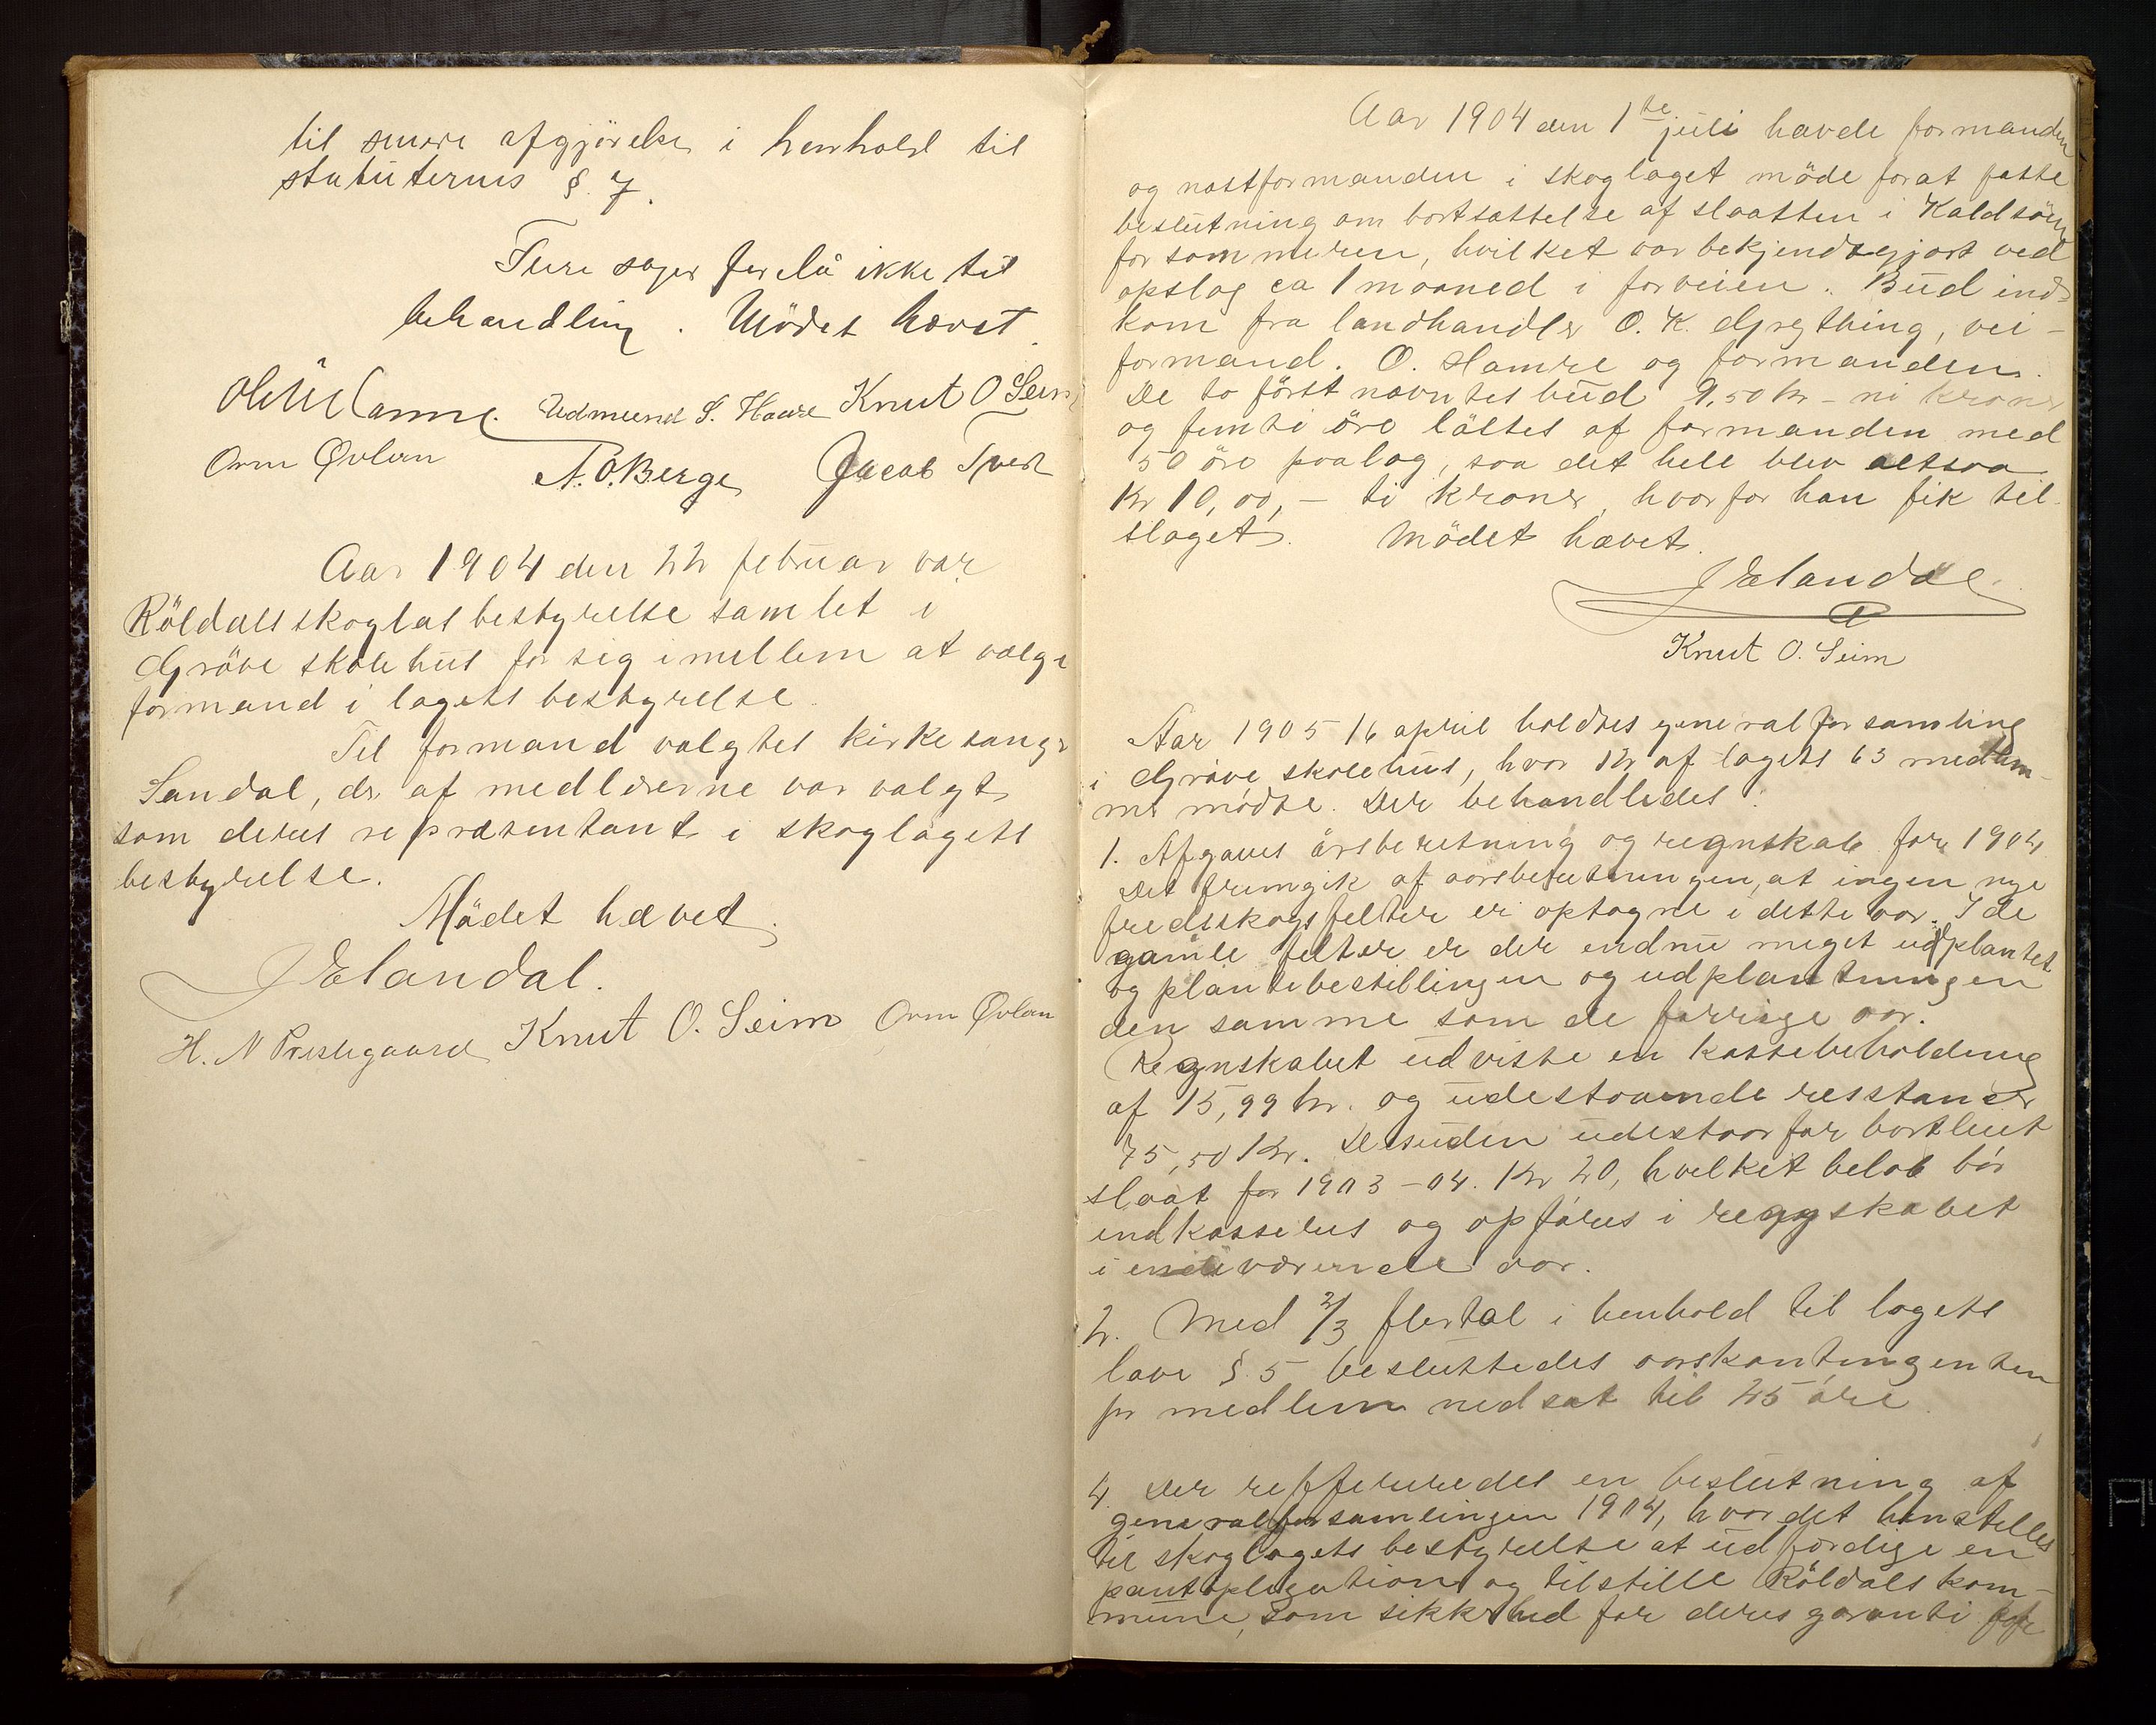 til senere afgjörelse i henhold til
statuternes § 7.
Flere sager forelå ikke til
behandling. Mödet hævet.
Edmund S. Haare Knut O Seim
Orm Øvlan N. O. Berge Jacob
Aar 1904 den 22 februar var
Röldals skoglas bestyrelse samlet i
Gröve skolehus for sig imellem at vælge
formand i lagets bestyrelse.
Til formand valgtes kirkesanger
Sandal, der af medlemerne var valgt
som deres repræsentant i skoglagets
bestyrelse.
Mödet hævet.
J Elandal.
H. N Prestegaard Knut O. Seim Orm Øvlan
Aar 1904 den 1te juli havde formanden
og næstformanden i skoglaget möde for at fatte
beslutning om bortsættelse af slaatten i Kaldsöen
for sommeren, hvilket var bekjendtgjort ved
opslag ca 1 maaned i forveien. Bud ind-
kom fra landhandler O. K. Grething, vei-
formand. O. Hamre og formanden.
De to först nævntes bud 9,50 kr - ni kroner
og femti öre löstes af formanden med
50 öre paalag, saa det hele blev altsaa
Kr 10,00, - ti kroner, hvorfor han fik til-
slaget. Mödet hævet.
J Elandal
Knut O. Seim
Aar 1905 16 april holdtes generalforsamling
i Gröve skolehus, hvor 12 af lagets 63 medlem-
mer mödte. Der behandledes:
1. Afgaves årsberetning og regnskab for 1904
Det fremgik af aarsberetningen, at ingen nye
fredskogsfelter er optagne i dette aar. I de
gamle felter er der endnu meget udplantet
og plantebestillingen og udplantningen
den samme som de forrige aar.
Regnskabet udviste en kassebeholdning
af 15,99 kr. og udestaaende resstancer
75,50 Kr. Desuden udestaar for bortleiet
slaat for 1903-04. Kr 20, hvilket belöb bör
indkasseres og opföres i regnskabet
i indeværende aar.
2. Med 2/3 flertal i henhold til lagets
love § 5 besluttedes aarskontingenten
pr medlem nedsat til 25 öre.
4. Der reffereredes en beslutning af
generalforsamlingen 1904, hvor det henstilles
til skoglagets bestyrelse at udfördige en
pantopligation og tilstille Röldals kom-
mune, som sikkerhed for deres garanti for